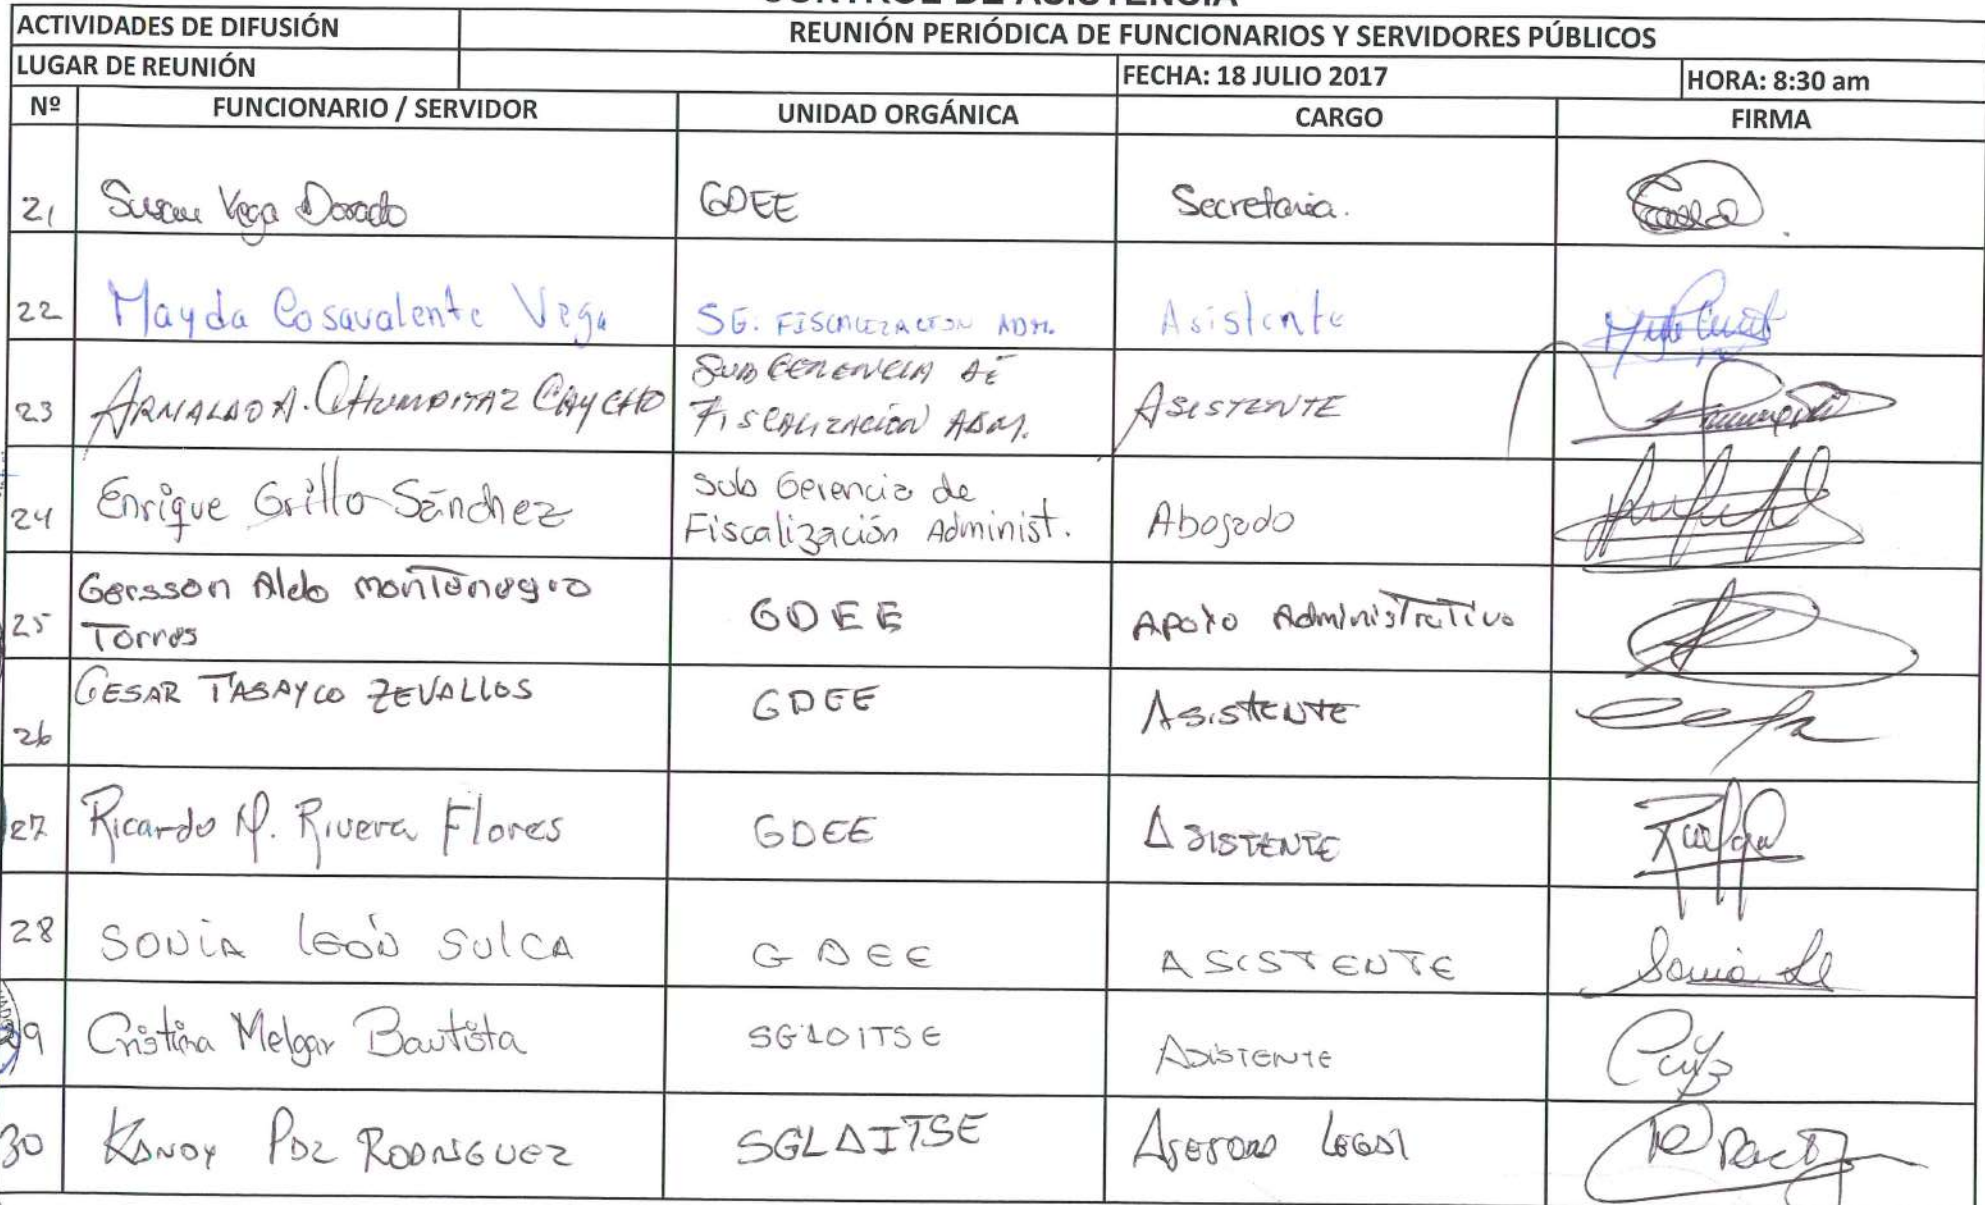 CONTROL DE ASISTENCIA
ACTIVIDADES DE DIFUSIÓN REUNIÓN PERIÓDICA DE FUNCIONARIOS Y SERVIDORES PÚBLICOS
LUGAR DE REUNIÓN FECHA: 18 JULIO 2017 HORA: 8:30 am
Nº FUNCIONARIO / SERVIDOR UNIDAD ORGÁNICA CARGO FIRMA
21 Susan Vega Dorado GDEE Secretaria.
22 Mayda Cosavalente Vega SG. FISCALIZACION ADM. Asistente
23 ARNALDO A. CHUMPITAZ CAYCHO SUB GERENCIA DE
FISCALIZACIÓN ADM. ASISTENTE
24 Enrique Grillo Sánchez Sub Gerencia de
Fiscalización Administ. Abogado
25 Gersson Aldo Montenegro
Torres GDEE Apoyo Administrativo
26 CESAR TASAYCO ZEVALLOS GDEE ASISTENTE
27 Ricardo M. Rivera Flores GDEE ASISTENTE
28 SONIA LEÓN SULCA GDEE ASISTENTE Sonia
29 Cristina Melgar Bautista ASISTENTE
30 PAZ RODRIGUEZ SGLAITSE LEGAL